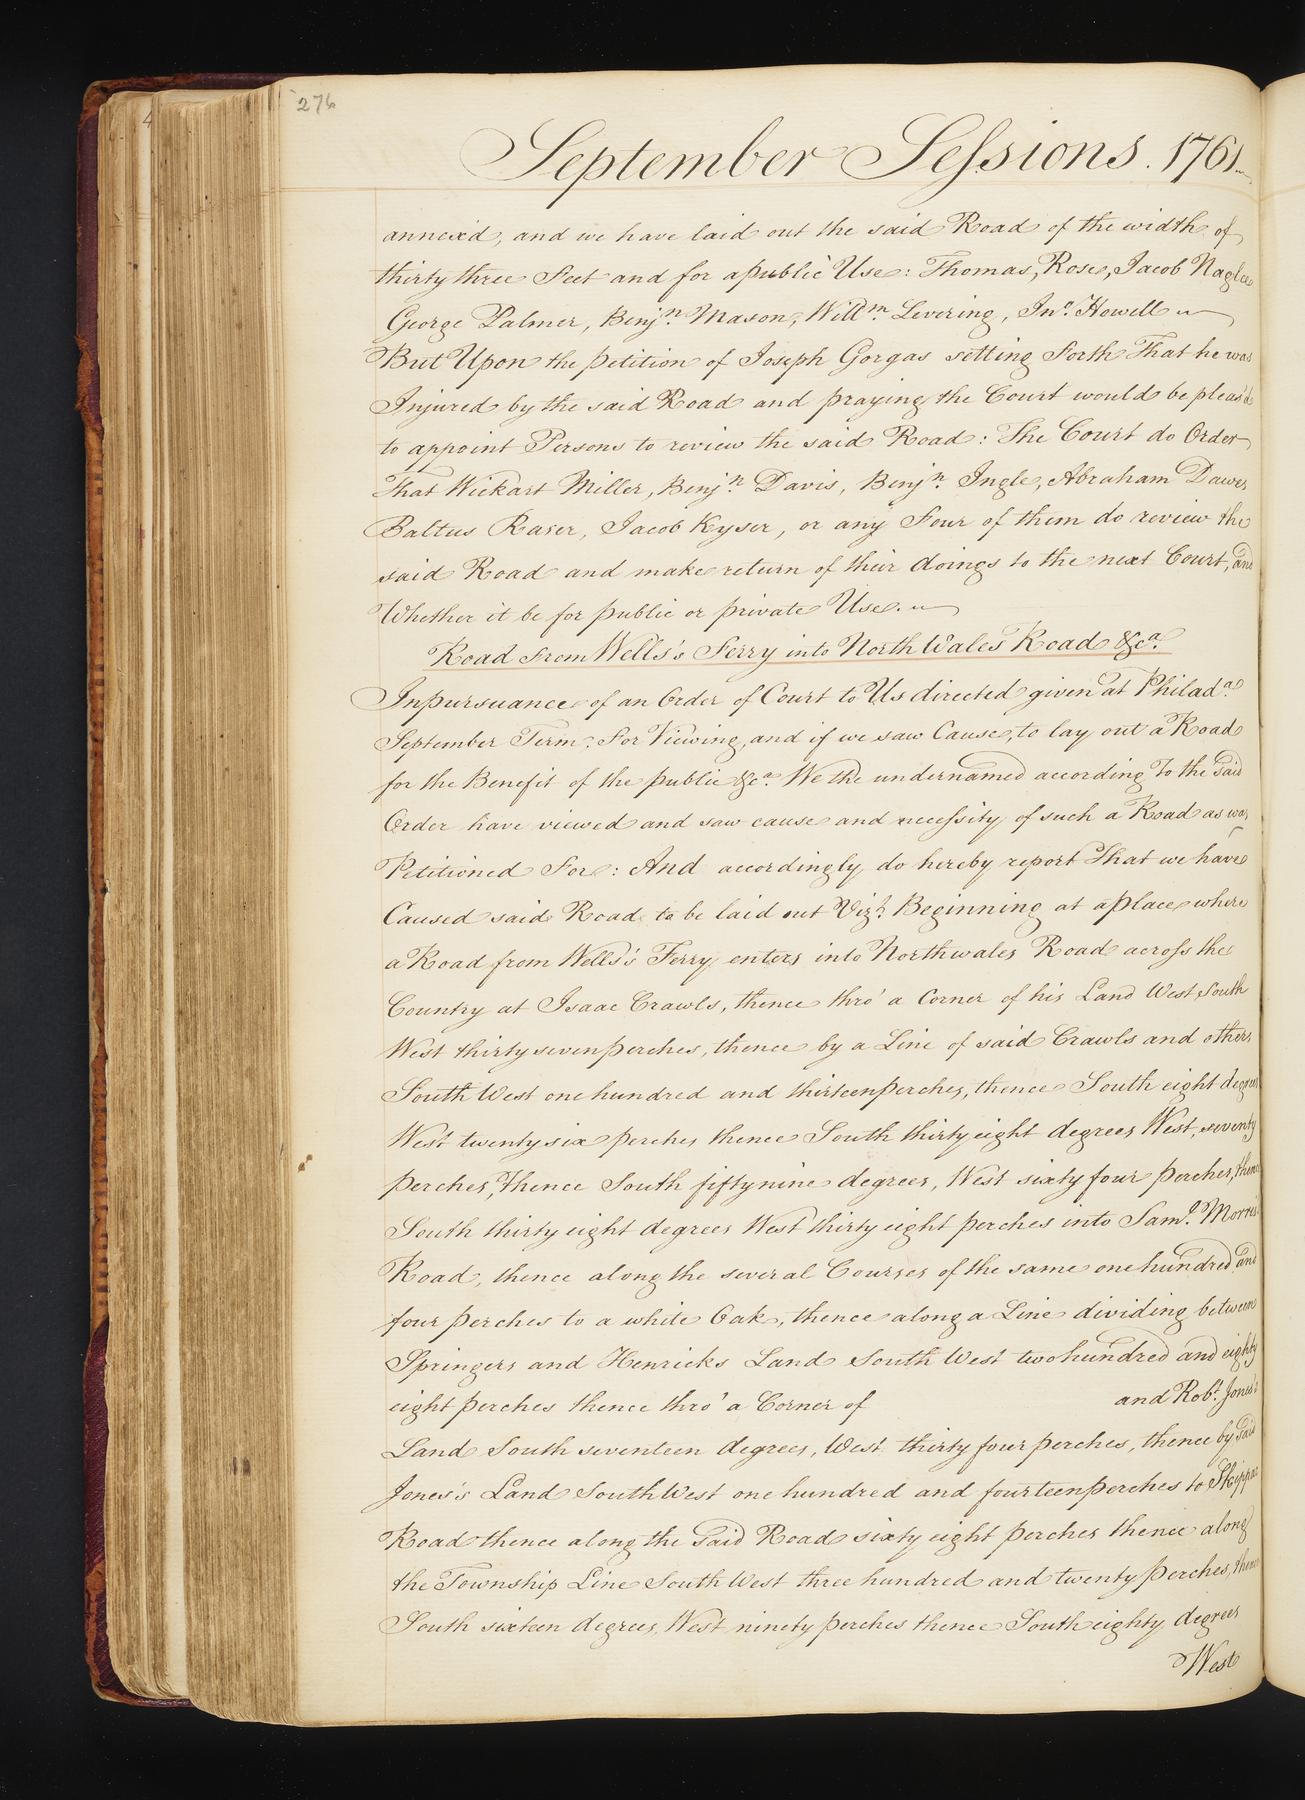 276
September Sessions. 1761
annexed, and we have laid out the said Road of the width of
thirty three Feet and for a public Use: Thomas Rose, Jacob Naglee
George Palmer, Benjn. Mason, Willm. Levering, Jno. Howell
But Upon the petition of Joseph Gorgas setting Forth That he was
Injured by the said Road and praying the Court would be pleas'd
to appoint Persons to review the said Road: The Court do Order
That Wickart Miller, Benjn. Davis, Benjn. Ingle, Abraham Dawes
Baltus Raser, Jacob Kyser, or any Four of them do review the
said Road and make return of their doings to the next Court, and
Whether it be for public or private Use.
Road from Wells's Ferry into North Wales Road &ca.
In pursuance of an Order of Court to Us directed given at Philada.
September Term. For Viewing, and if we saw Cause, to lay out a Road
for the Benefit of the public &ca. We the undernamed according To the said
Order have viewed and saw cause and necessity of such a Road as was
Petitioned For: And accordingly do hereby report That we have
Caused said Road to be laid out Vizt. Beginning at a place where
a Road from Wells's Ferry enters into Northwales Road across the
Country at Isaac Crawls, thence thro' a Corner of his Land West South
West thirty seven perches, thence by a Line of said Crawls and others
South West one hundred and thirteen perches, thence South eight degrees
West twenty six perches thence South thirty eight degrees West, seventy
perches, Thence South fifty nine degrees, West sixty four perches, thence
South thirty eight degrees West thirty eight perches into Saml. Morris's
Road, thence along the several Courses of the same one hundred and
four perches to a white Oak, thence along a Line dividing between
Springers and Henricks Land South West two hundred and eighty
eight perches thence thro' a Corner of and Robt. Jones's
Land South seventeen degrees, West thirty four perches, thence by said
Jones's Land South West one hundred and fourteen perches to Skippac
Road thence along the said Road sixty eight perches thence along
the Township Line South West three hundred and twenty perches, thence
South sixteen degrees, West ninety perches thence South eighty degrees
West